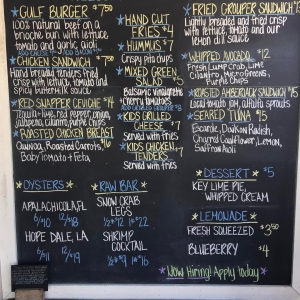 GULF BURGER
100% natural beef on a
brioche bun with lettuce,
tomato and garlic aioli
CHICKEN SANDWICH $
Hand breaded tenders fried
crisp with lettuce, tomato and
spicy buttermilk sauce
RED SNAPPER CEVICHE $14
Tequila-lime, red pepper, onion,
jalapeno, cilantro, pita chips
ROASTED CHICKEN BREAST
Quinoa, Roasted Carrots,
Baby Tomato + Feta
HAND CUT
FRIES $4
HUMMUS $7
Crispy pita chips
MIXED GREEN
SALAD
Balsamic Vinaigrette
Cherry Tomatoes
KIDS GRILLED
CHEESE $7
Served with fries
KIDS CHICKEN
TENDERS $7
Served with fries
FRIED GROUPER SANDWICH
Lightly breaded and fried crisp
with lettuce, tomato and our
lemon dill sauce
WHIPPED AVOCADO $12
Fresh Lump Crab, Lime
Cilantro, Micro Greens,
ROASTED AMBERJACK SANDWICH $15
Local tomato jam, alfalfa sprouts
SEARED TUNA $15
Escarole, Daikon Radish,
Charred Cauliflower, Lemon,
Saffron Aioli
OYSTERS
APALACHICOLA, FL
6/$10 12/$18
HOPE DALE, LA
6/$11 12/$19
RAW BAR
SNOW CRAB
LEGS
1/2# $12 1# $22
SHRIMP
COCKTAIL
1/2# $9 1# $16
DESSERT $5
KEY LIME PIE,
WHIPPED CREAM
LEMONADE
FRESH SQUEEZED $3.50
BLUEBERRY $4
Now Hiring! Apply today